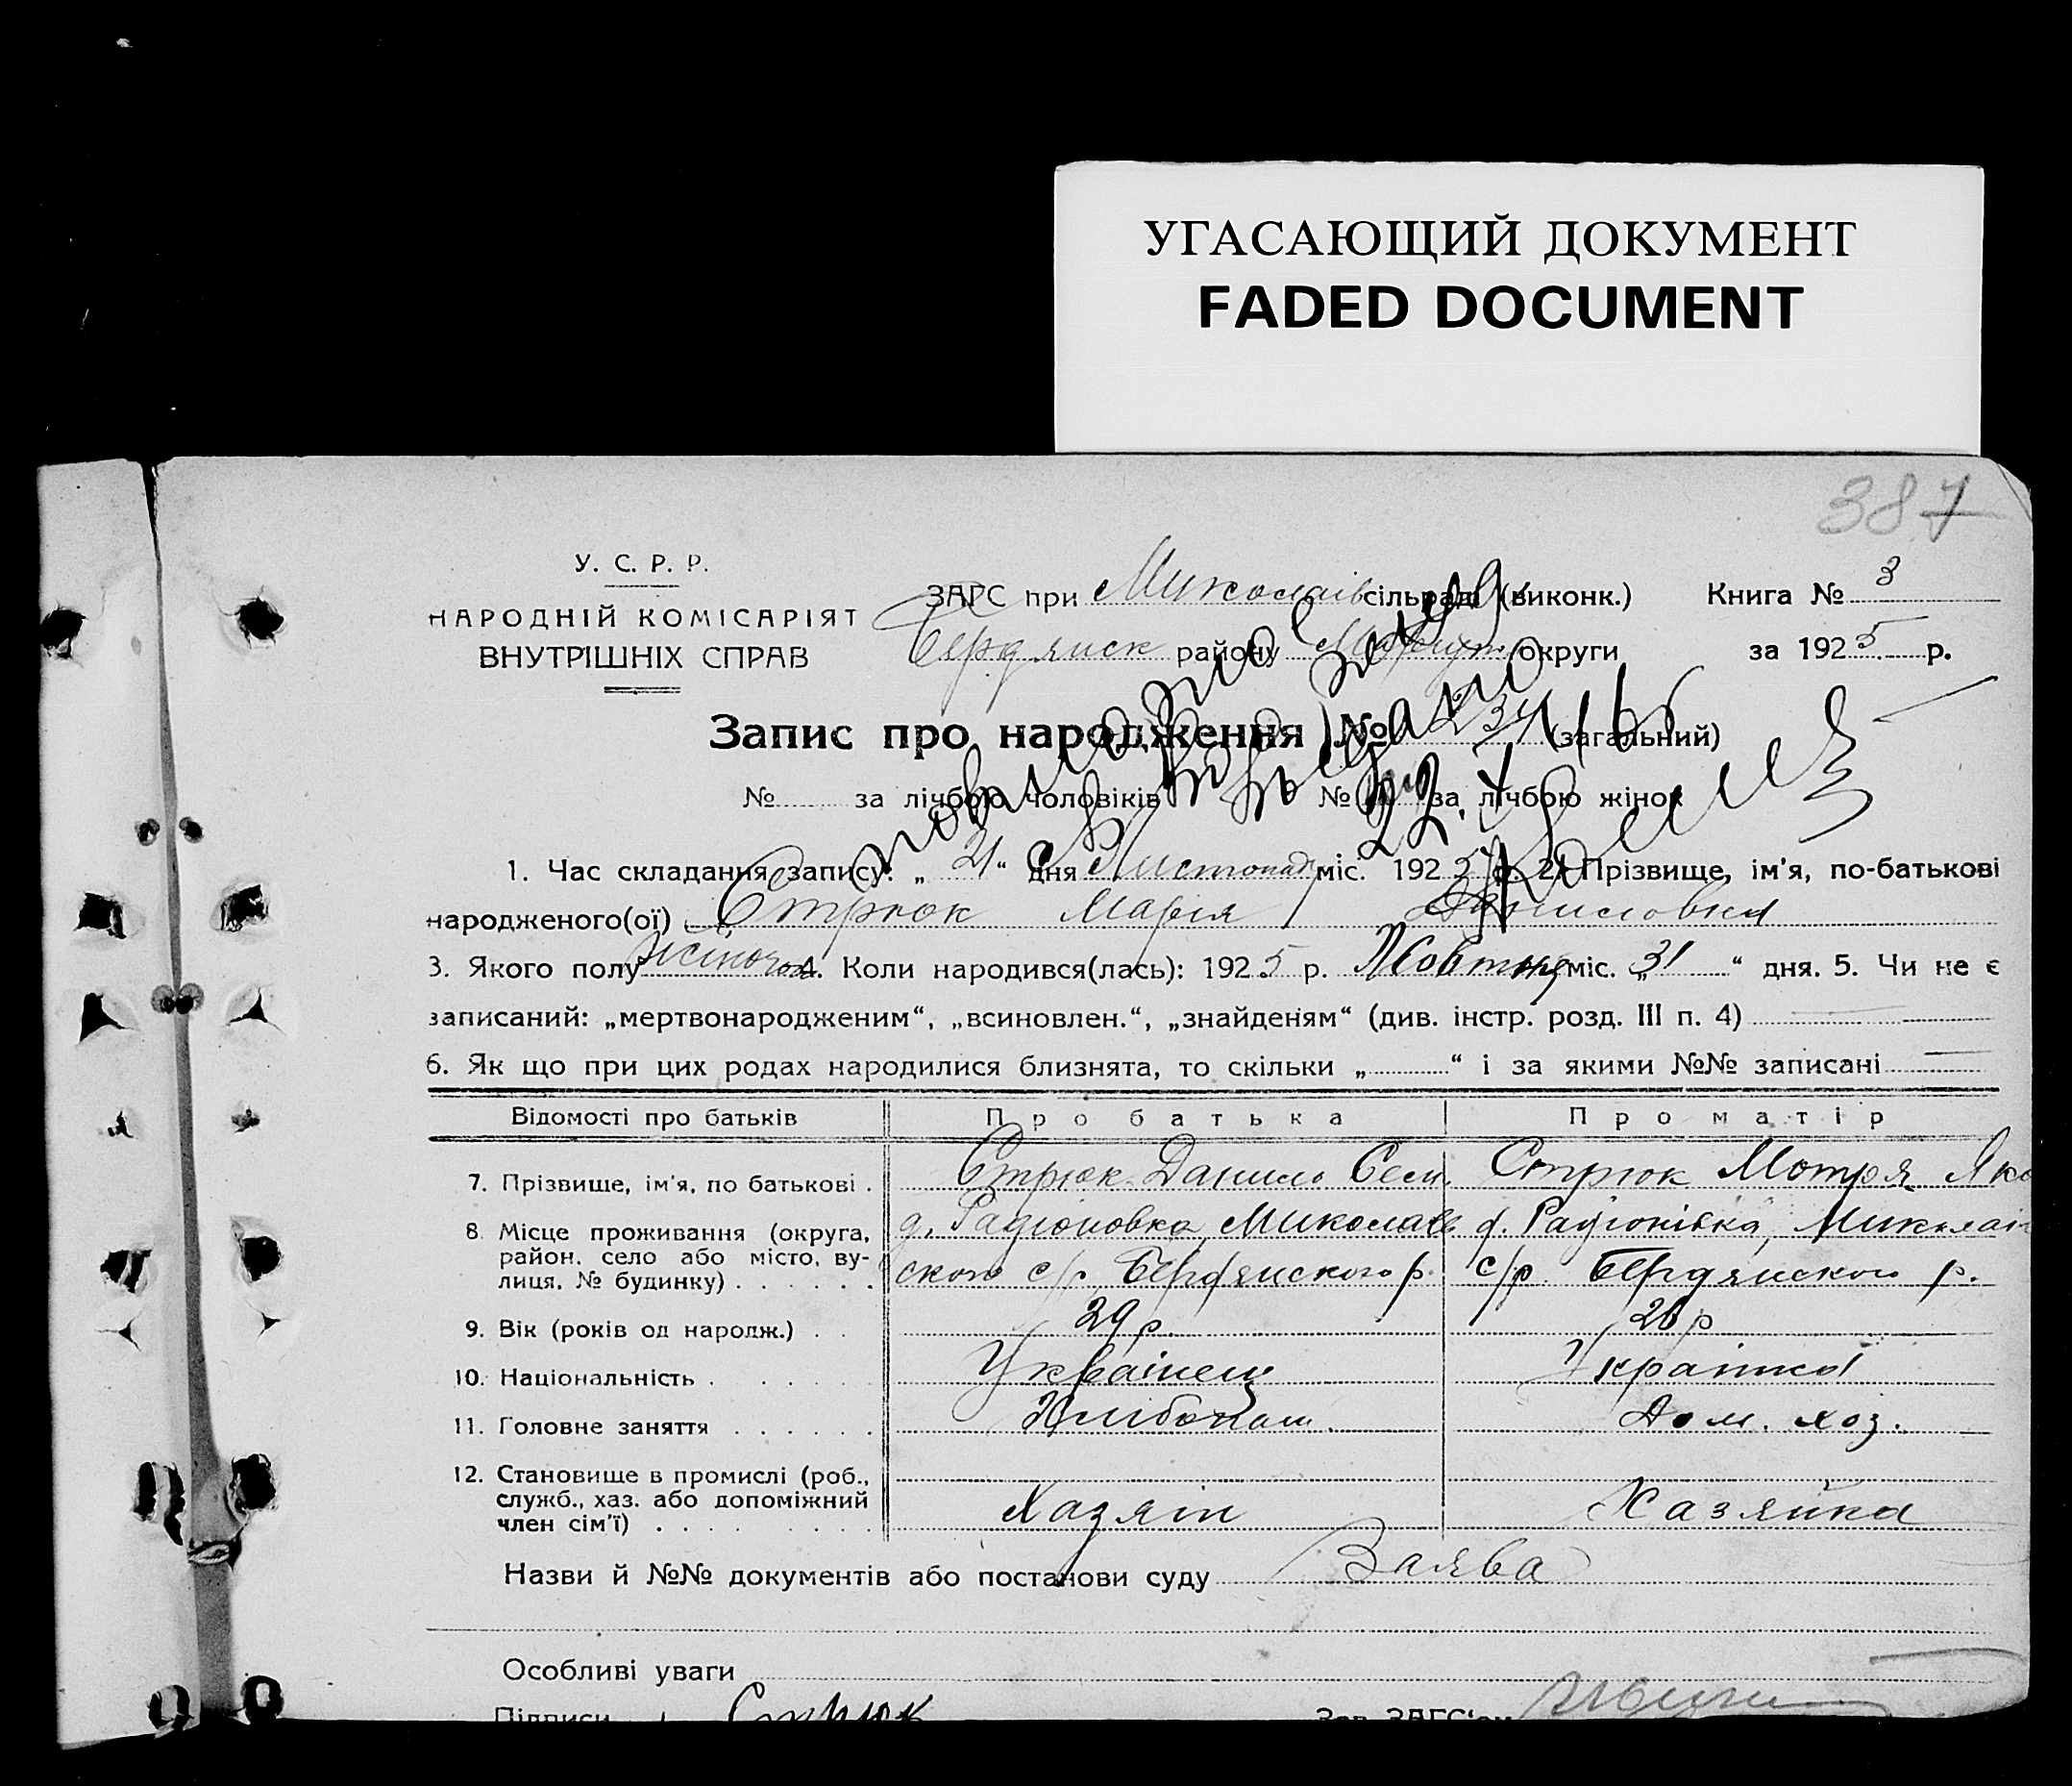 УГАСАЮЩИЙ ДОКУМЕНТ
FADED DOCUMENT
387
У. С. Р. Р.
НАРОДНІЙ КОМІСАРІЯТ
ВНУТРІШНІХ СПРАВ
ЗАГС при Миколаїв сільраді (виконк.) Книга № 3
Бердянск району округи за 1925 р.
Запис про народження № 234 (загальний)
№ за лічбою чоловіків № за лічбою жінок
1. Час складання запису: „21“ дня Листопад міс. 1925 р. 2. Прізвище, ім'я, по-батькові
народженого(ої) Стрюк Марія Даниловна
3. Якого полу жіноч. 4. Коли народився(лась): 1925 р. Жовтня міс. „31“ дня. 5. Чи не є
записаний: „мертвонародженим“, „всиновлен.“, „знайденям“ (див. інстр. розд. III п. 4)
6. Як що при цих родах народилися близнята, то скільки „ “ і за якими №№ записані
Відомості про батьків Про батька Про матір
7. Прізвище, ім'я, по батькові . Стрюк Данило Сем. Стрюк Мотря Яко
8. Місце проживання (округа, район, село або місто, вулиця, № будинку) . . . . . .
д. Радіоновка, Миколаїв д. Радіонівка, Миколаїв
ского с/р Бердянского р. с/р Бердянского р.
9. Вік (років од народж.) . . 29 р. 26 р
10. Національність . . . . . Українец Українка
11. Головне заняття . . . . . . Хлібопаш. Дом. хоз.
12. Становище в промислі (роб., служб., хаз. або допоміжний член сім'ї) . . . . . . Хазяїн Хазяйка
Назви й №№ документів або постанови суду Заява
Особливі уваги
Підписи Стрюк Зав. ЗАГС'ом